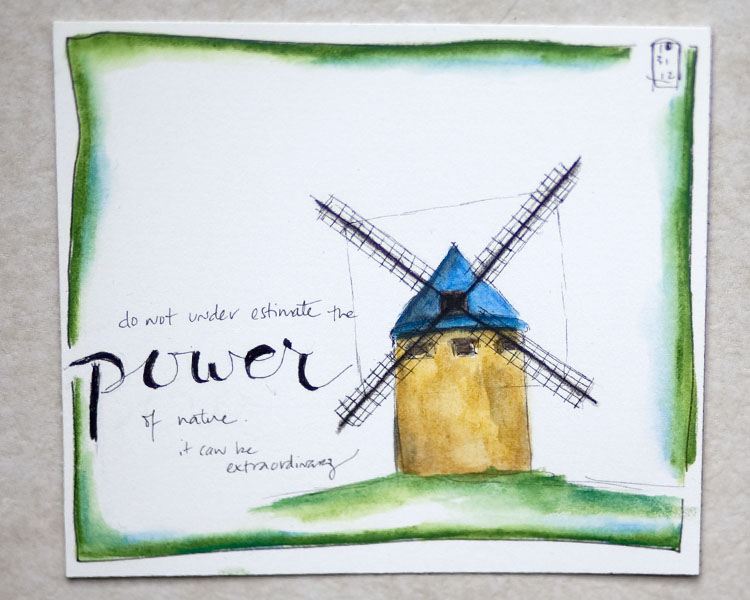 10
31
12
do not under estimate the
power
of nature.
it can be
extraordinary